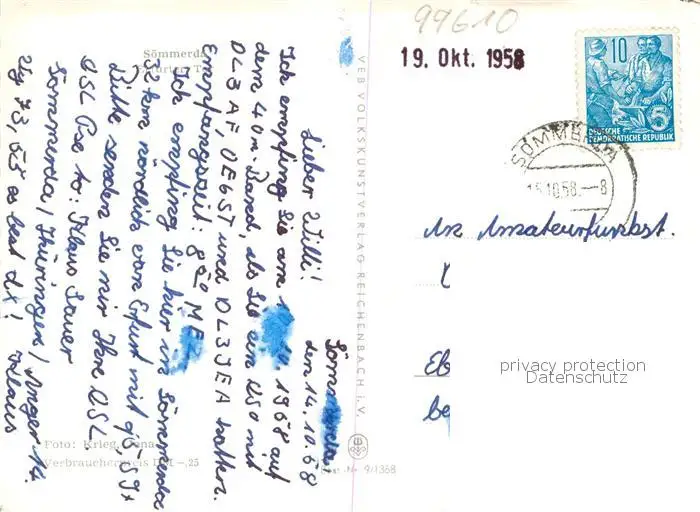 99610
19. Okt. 1958
10
5
DEUTSCHE
DEMOKRATISCHE REPUBLIK
SÖMMERDA
15.10.58.–8
Sömmerda
Erfurter T
VEB VOLKSKUNSTVERLAG REICHENBACH i.V.
Sömmerda
den 14.10.58
Lieber Willi!
Ich empfing Sie am 1968 auf
dem 40m-Band, als Sie ein QSO mit
DL3AF, OE6ST und DL3JEA hatten.
Empfangszeit: 8²⁰ MEZ
Ich empfing Sie hier in Sömmerda
km nördlich von Erfurt mit 59+
Bitte senden Sie mir Ihre QSL
QSL Pse to: Klaus Sauer
Sömmerda/Thüringen/Anger 14.
Vy 73, 55 es best dx! Klaus
An Amateurfunkst.
Eb
be
privacy protection
Datenschutz
Foto: Krieg, Jena
Verbraucherpreis DM –,25
Nr 9/1368